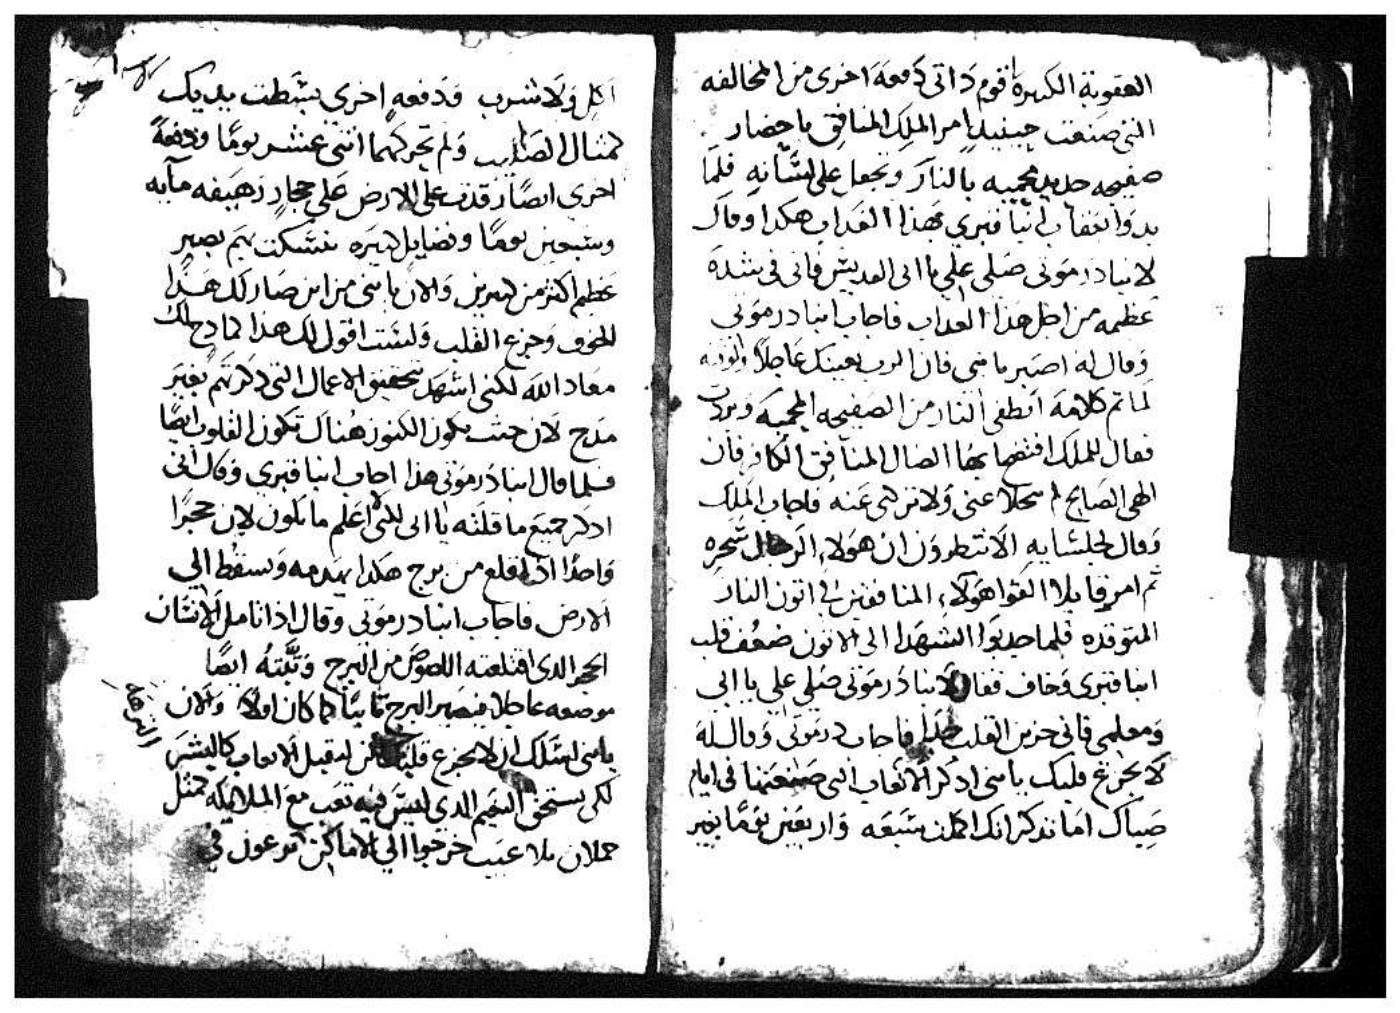 العقوبة الكبيرة اقوم ذاتى دفعة اخرى من المخالفه
التى صنعت حينيد امر الملك المنافق باحضار
صفيحه حديد محميه بالنار وتجعل على لسانه فلما
بدوا بعقاب انبا فبرى بهذا العذاب هكدا وقال
لانبا درمونى صلى على يا ابى القديس فانى فى شدة
عظيمه من اجل هذا العداب فاجاب انبا درمونى
وقال له اصبر يا بنى فان الرب يعينك عاجلا
لما تم كلامه انطفى النار من الصفيحه المحميه وبردت
فقال للملك افتضح ايها الضال المنافق الكافر فان
الهى الصالح لم يتخلا عنى ولا تركنى عنه فاجاب الملك
وقال لجلسايه الا تنظرون ان هولاء الرجال سحره
ثم امر قايلا القوا هولاء المنافقين فى اتون النار
المتوقده فلما جدبوا الشهدا الى الاتون ضعف قلب
انبا فبرى وخاف فقال لانبا درمونى صلى على يا ابى
ومعلمى فانى حزين القلب جدا فاجاب درمونى وقال له
لا يجزع قلبك يا بنى ادكر الاتعاب التى صنعتها فى ايام
صباك اما تدكر انك اكملت سبعه واربعين يوما بغير
اكل ولا شرب ودفعه اخرى بسطت يديك
كمثال الصليب ولم تحركهما اثنى عشر يوما ودفعة
اخرى ايضا رقدت على الارض على حجار رهيفه مايه
وسبعين يوما وفضايل كثيره تمسكت بهم بصبر
عظيم اكثر من كثيرين والان يا بنى من اين صار لك هدا
الخوف وجزع القلب ولست اقول لك هذا كمادح لك
معاد الله لكنى اشهد بتحقيق الاعمال التى دكرتهم بغير
مدح لان حيث يكون الكنوز هناك تكون القلوب ايضا
فلما قال انبا درمونى هذا اجاب انبا فبرى وقال انى
ادكر جميع ما قلته يا ابى لكنى اعلم ما يكون لان حجرا
واحدا اذا قلع من برج هكدا يهدمه ويسقط الى
الارض فاجاب انبا درمونى وقال اذا تامل الانسان
الحجر الدى اقتلعته اللصوص من البرج وثبته ايضا
موضعه عاجلا فيصير البرج ثابتا كما كان اولا والان
يا بنى اسلك ان لا يجزع قلبك لكن اقبل الاتعاب كاليسر
لكى يستحق النعيم الدى ليس فيه تعب مع الملايكه كمثل
حملان بلا عيب خرجوا الى الاماكن المرعون فى